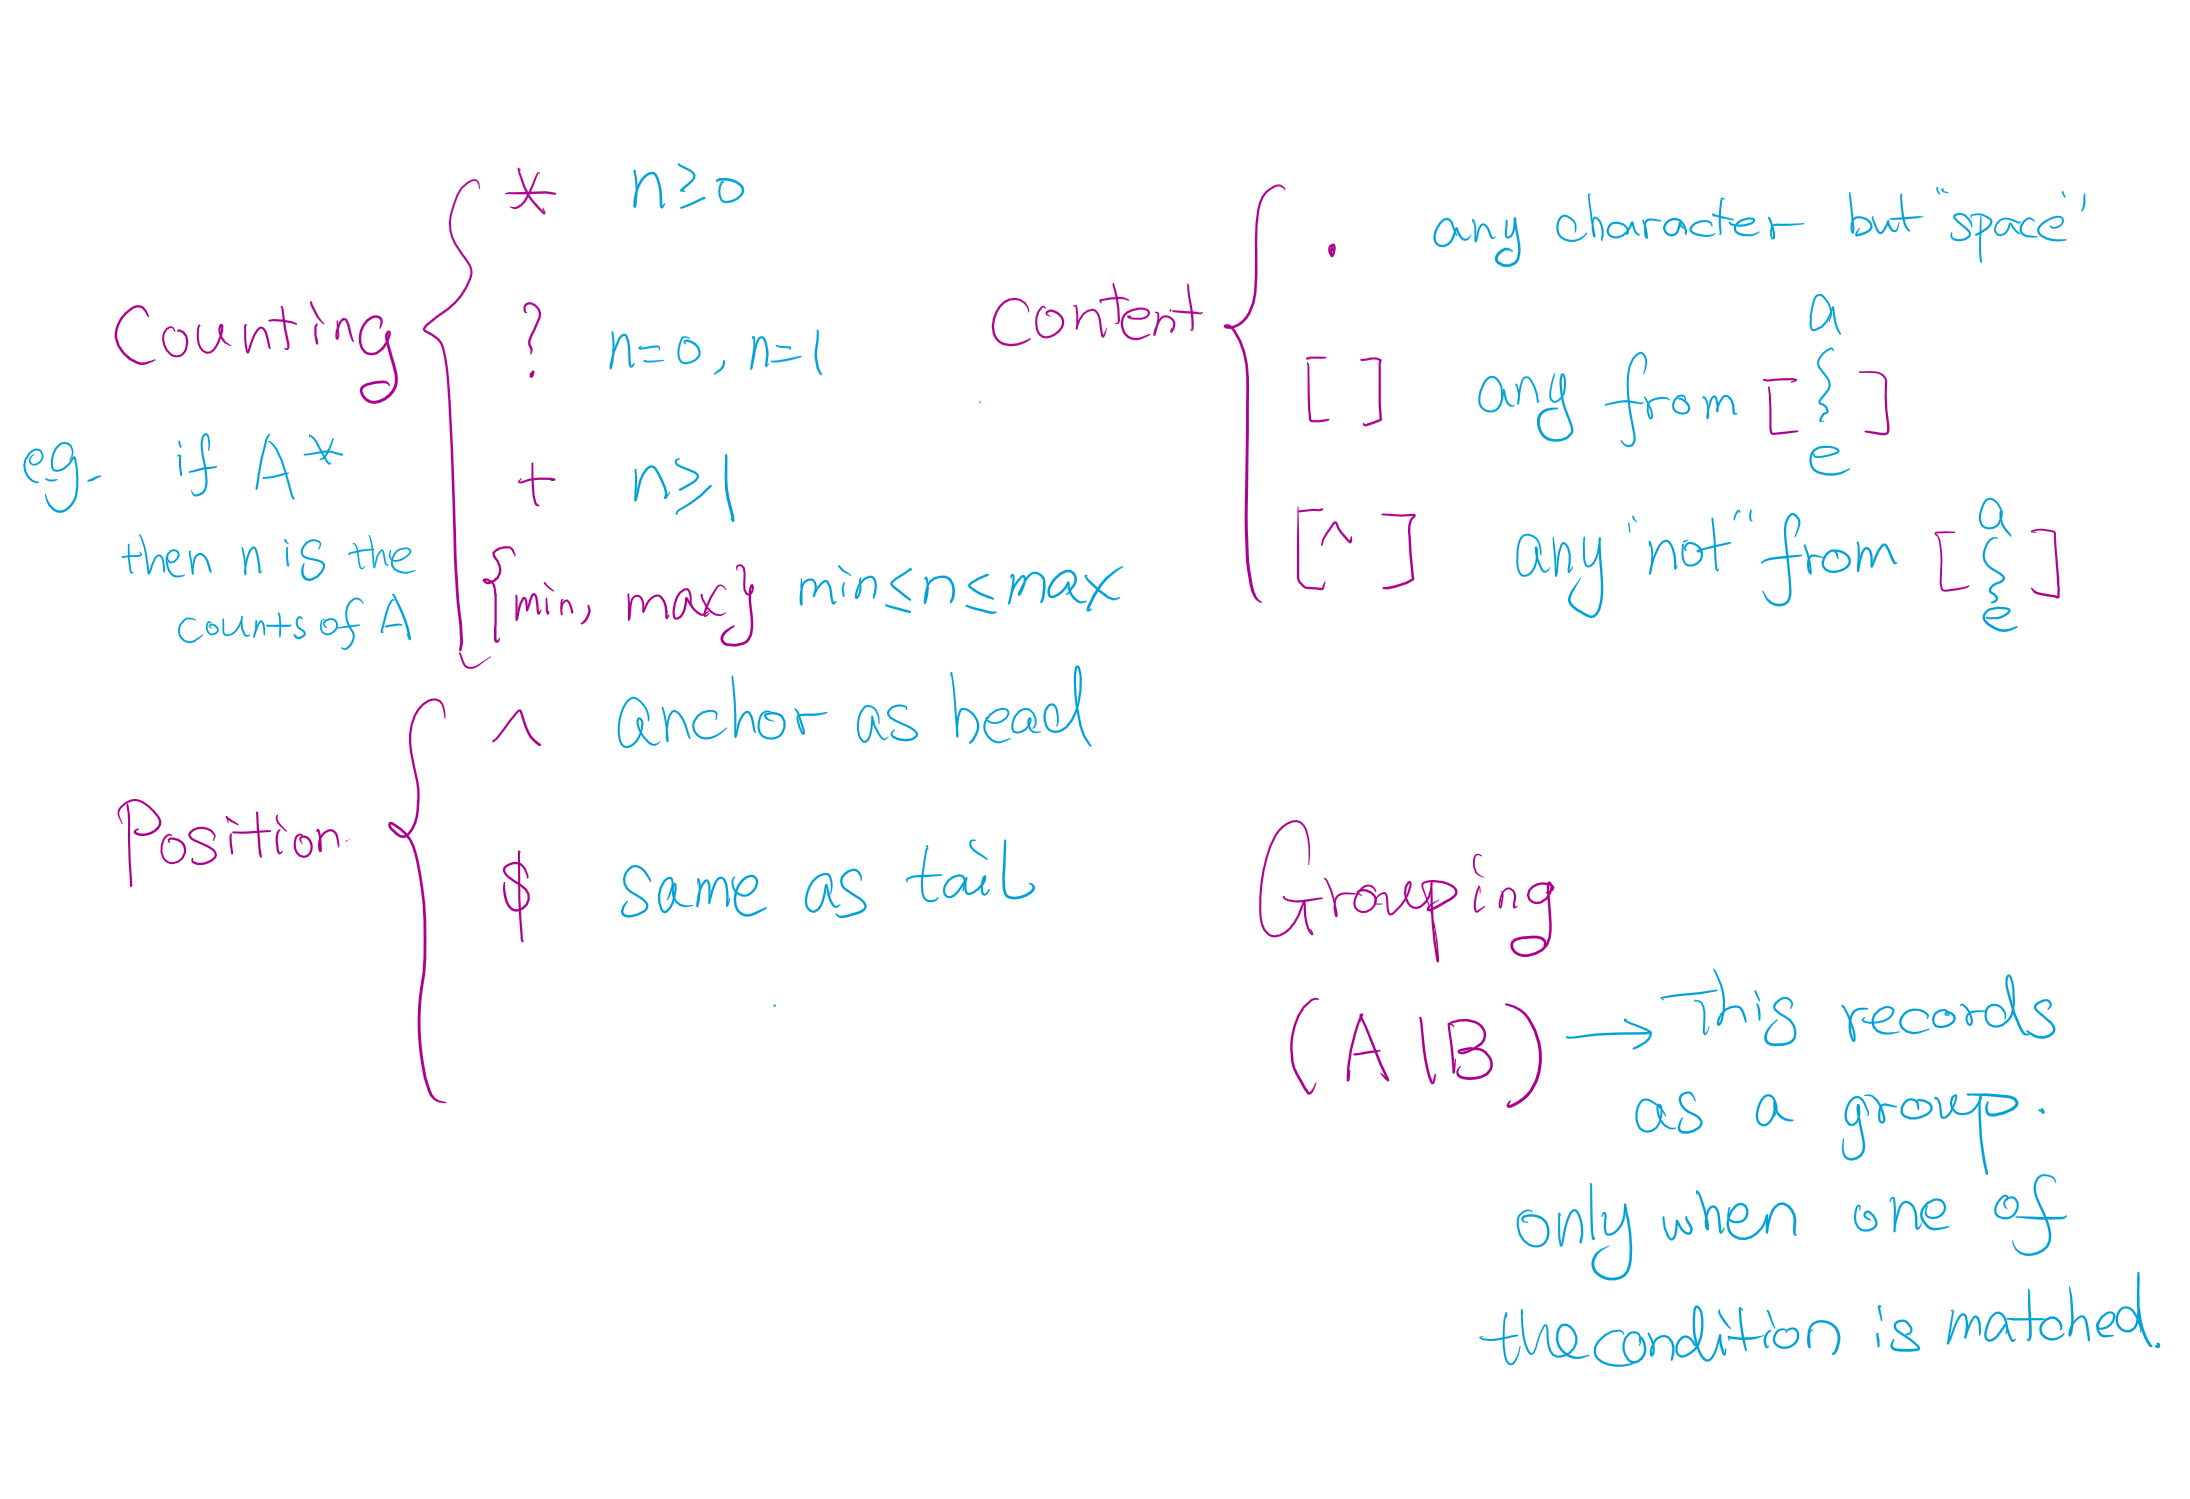 Counting
* n≥0
? n=0, n=1
+ n≥1
{min, max} min≤n≤max
eg. if A*
then n is the
counts of A
Content
. any character but "space"
[ ] any from [a{e]
[^ ] any "not" from [a{e]
Position
^ anchor as head
$ same as tail
Grouping
(A|B) → This records
as a group.
only when one of
the condition is matched.